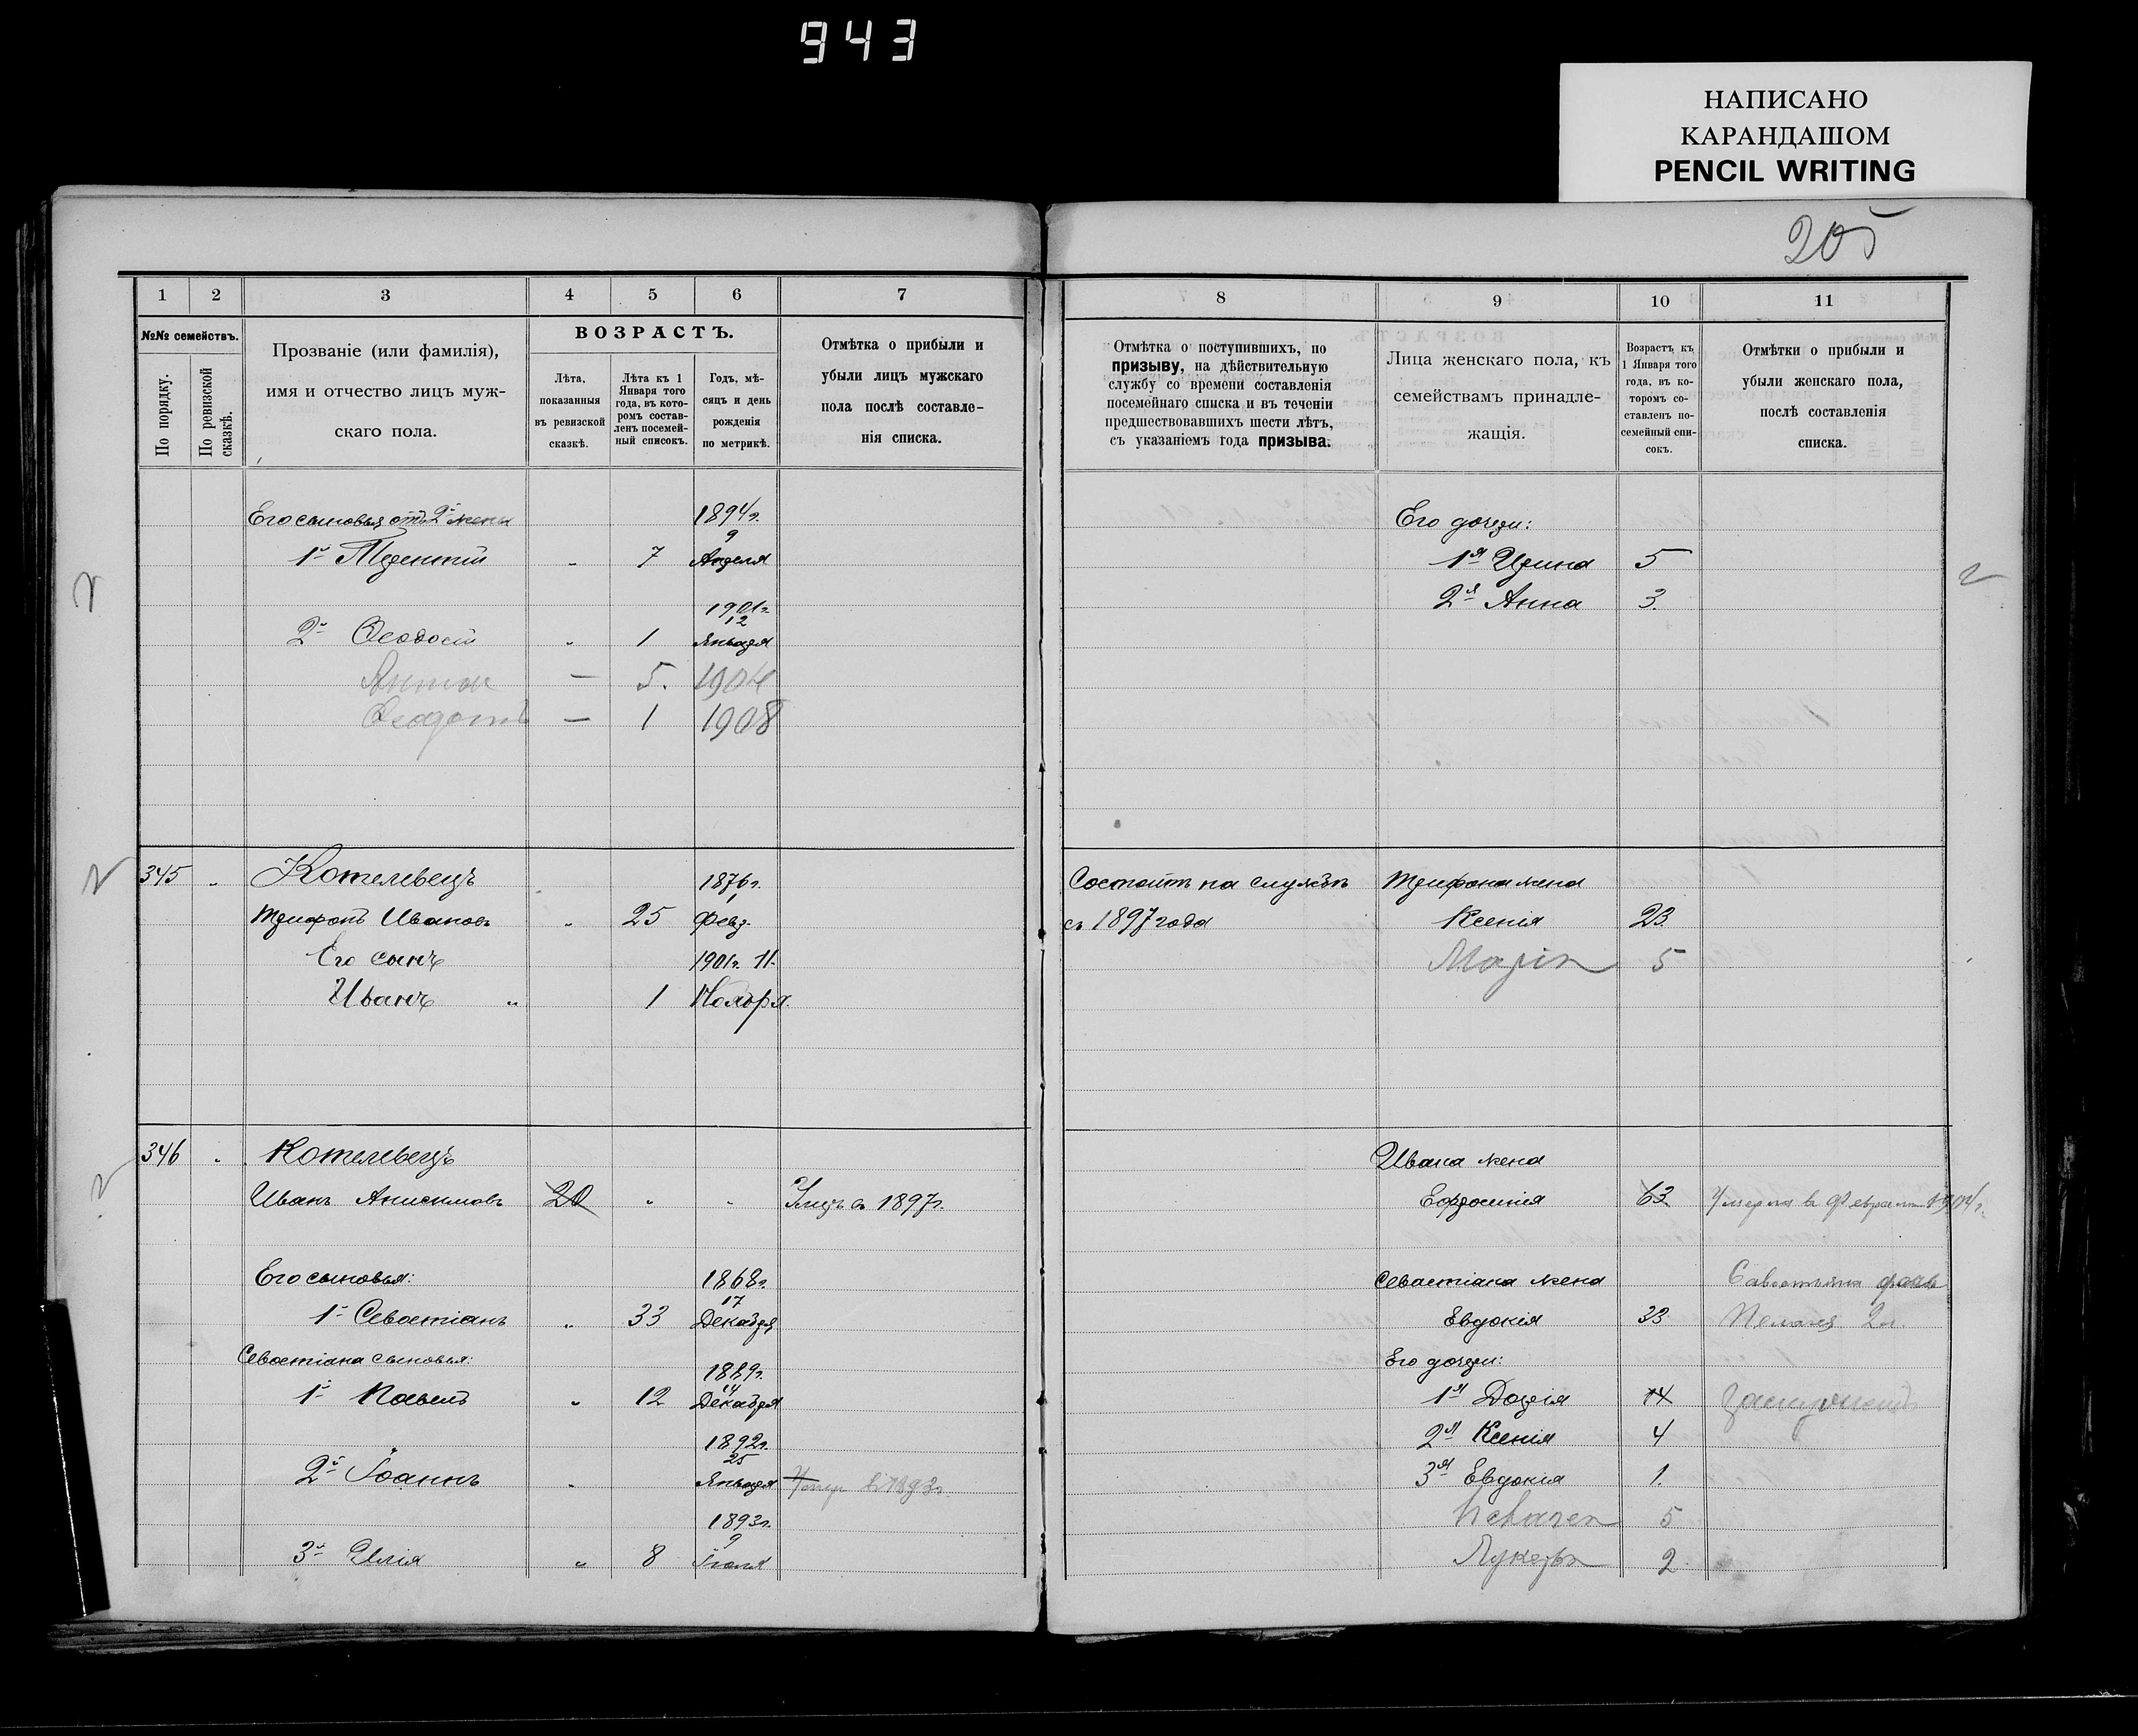 943
НАПИСАНО
КАРАНДАШОМ
PENCIL WRITING
205
1 2 3 4 5 6 7
№№ семействъ.
По порядку.
По ревизской сказкѣ.
Прозваніе (или фамилія),
имя и отчество лицъ муж-
скаго пола.
ВОЗРАСТЪ.
Лѣта,
показанныя
въ ревизской
сказкѣ.
Лѣта къ 1
Января того
года, въ кото-
ромъ состав-
ленъ посемей-
ный списокъ.
Годъ, мѣ-
сяцъ и день
рожденія
по метрикѣ.
Отмѣтка о прибыли и
убыли лицъ мужскаго
пола послѣ составле-
нія списка.
Его сыновья отъ 2й жены 1894г.
9
1й Терентій " 7 Апреля
1901г.
12
2й Ѳеодосій " 1 Января
Антон — 5. 1904
Ѳеодотъ — 1 1908
345 " Котелевецъ 1876г.
1
Трифонъ Ивановъ " 25 Февр.
Его сынъ 1901г. 11.
Иванъ " 1 Ноября.
346 " Котелевецъ
Иванъ Анисимовъ 20 " " Умеръ въ 1897г.
Его сыновья: 1868г.
17
1й Севастіанъ " 33 Декабря
Севастіана сыновья: 1889г.
14
1й Павелъ " 12 Декабря
1892г.
25
2й Іоаннъ " Января Умер в 1893г.
1893г.
9
3й Илія " 8 Іюля
8 9 10 11
Отмѣтка о поступившихъ, по
призыву, на дѣйствительную
службу со времени составленія
посемейнаго списка и въ теченіи
предшествовавшихъ шести лѣтъ,
съ указаніемъ года призыва.
Лица женскаго пола, къ
семействамъ принадле-
жащія.
Возрастъ къ
1 Января того
года, въ ко-
торомъ со-
ставленъ по-
семейный спи-
сокъ.
Отмѣтки о прибыли и
убыли женскаго пола,
послѣ составленія
списка.
Его дочери:
1я Ирина 5
2я Анна 3.
Состоитъ на службѣ Трифона жена
съ 1897 года Ксенія 23.
Марія 5
Ивана жена
Ефросинія 63 Умерла в Феврале 1904г.
Севастіана жена
Евдокія 33 Пелагея 2г.
Его дочери:
1я Дарія 14
2я Ксенія 4
3я Евдокія 1.
Пелагея 5
Лукерья 2